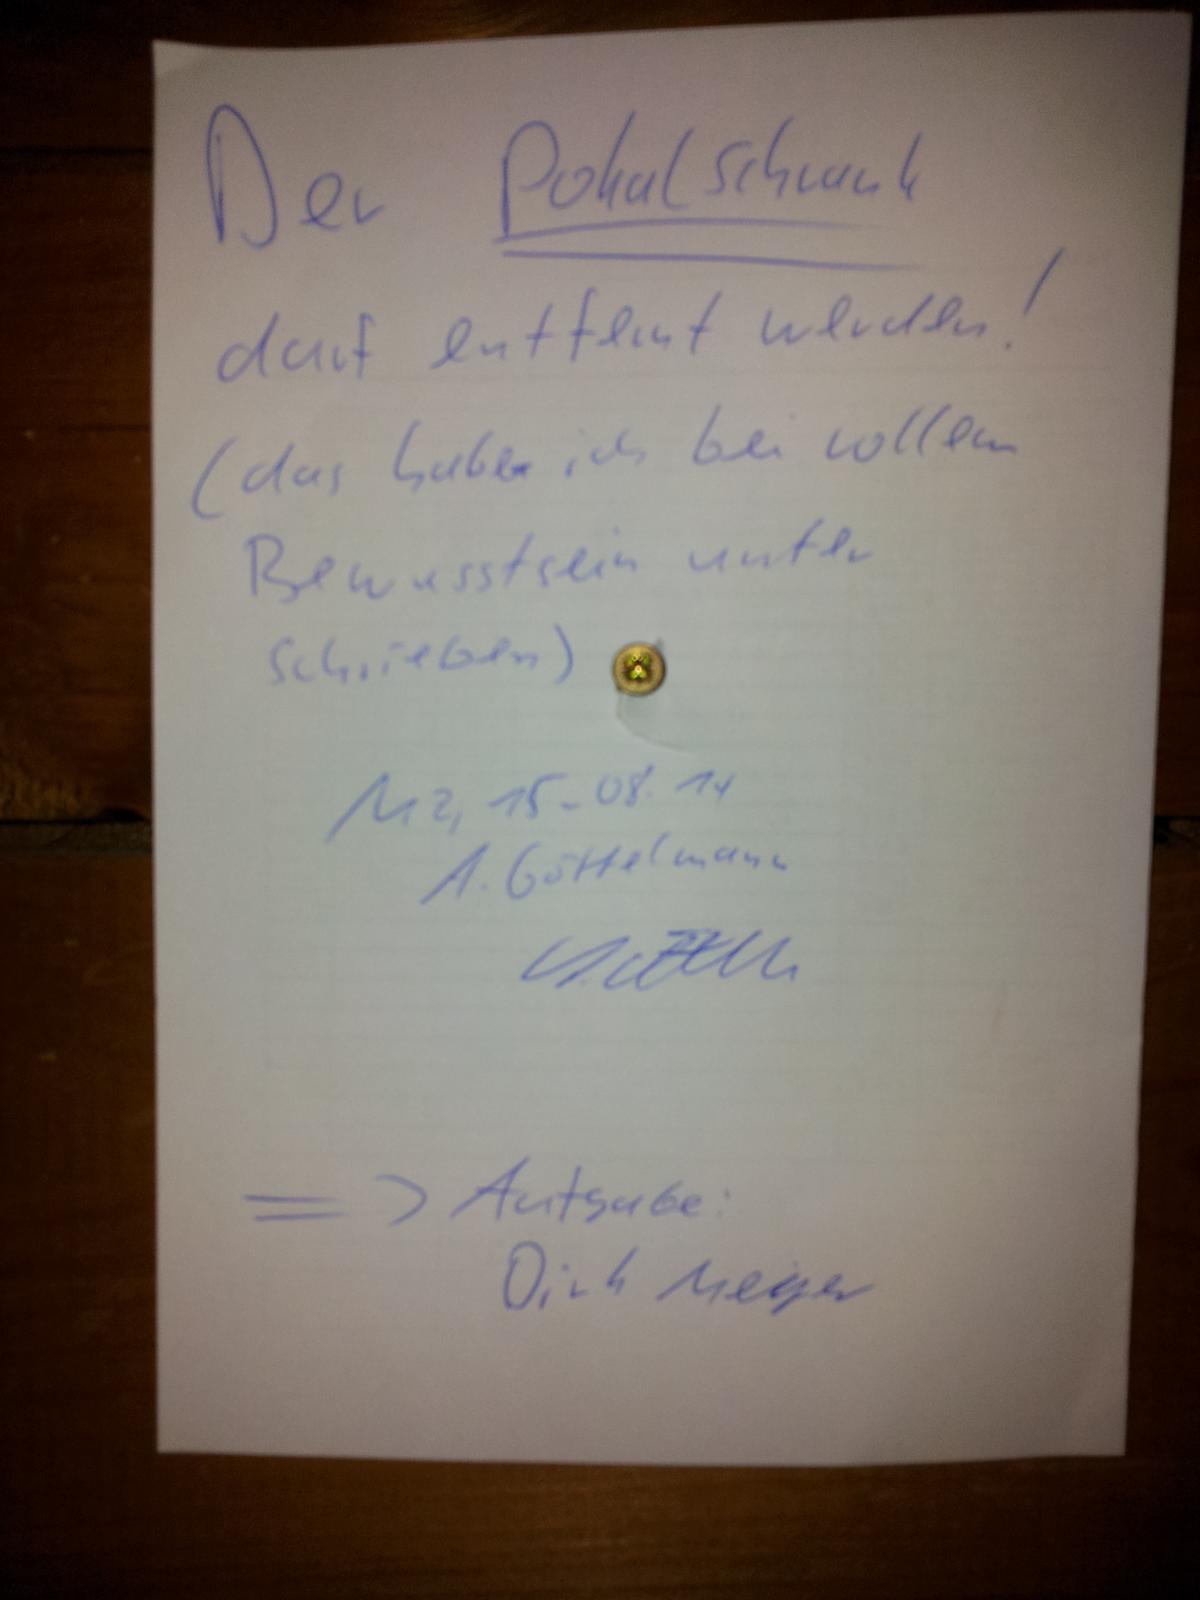 Der Pokalschrank
darf entfernt werden!
(das habe ich bei vollem
Bewusstsein unter
schrieben)
MZ, 15.08.14
A. Göttelmann
=> Aufgabe:
Dirk Meiger